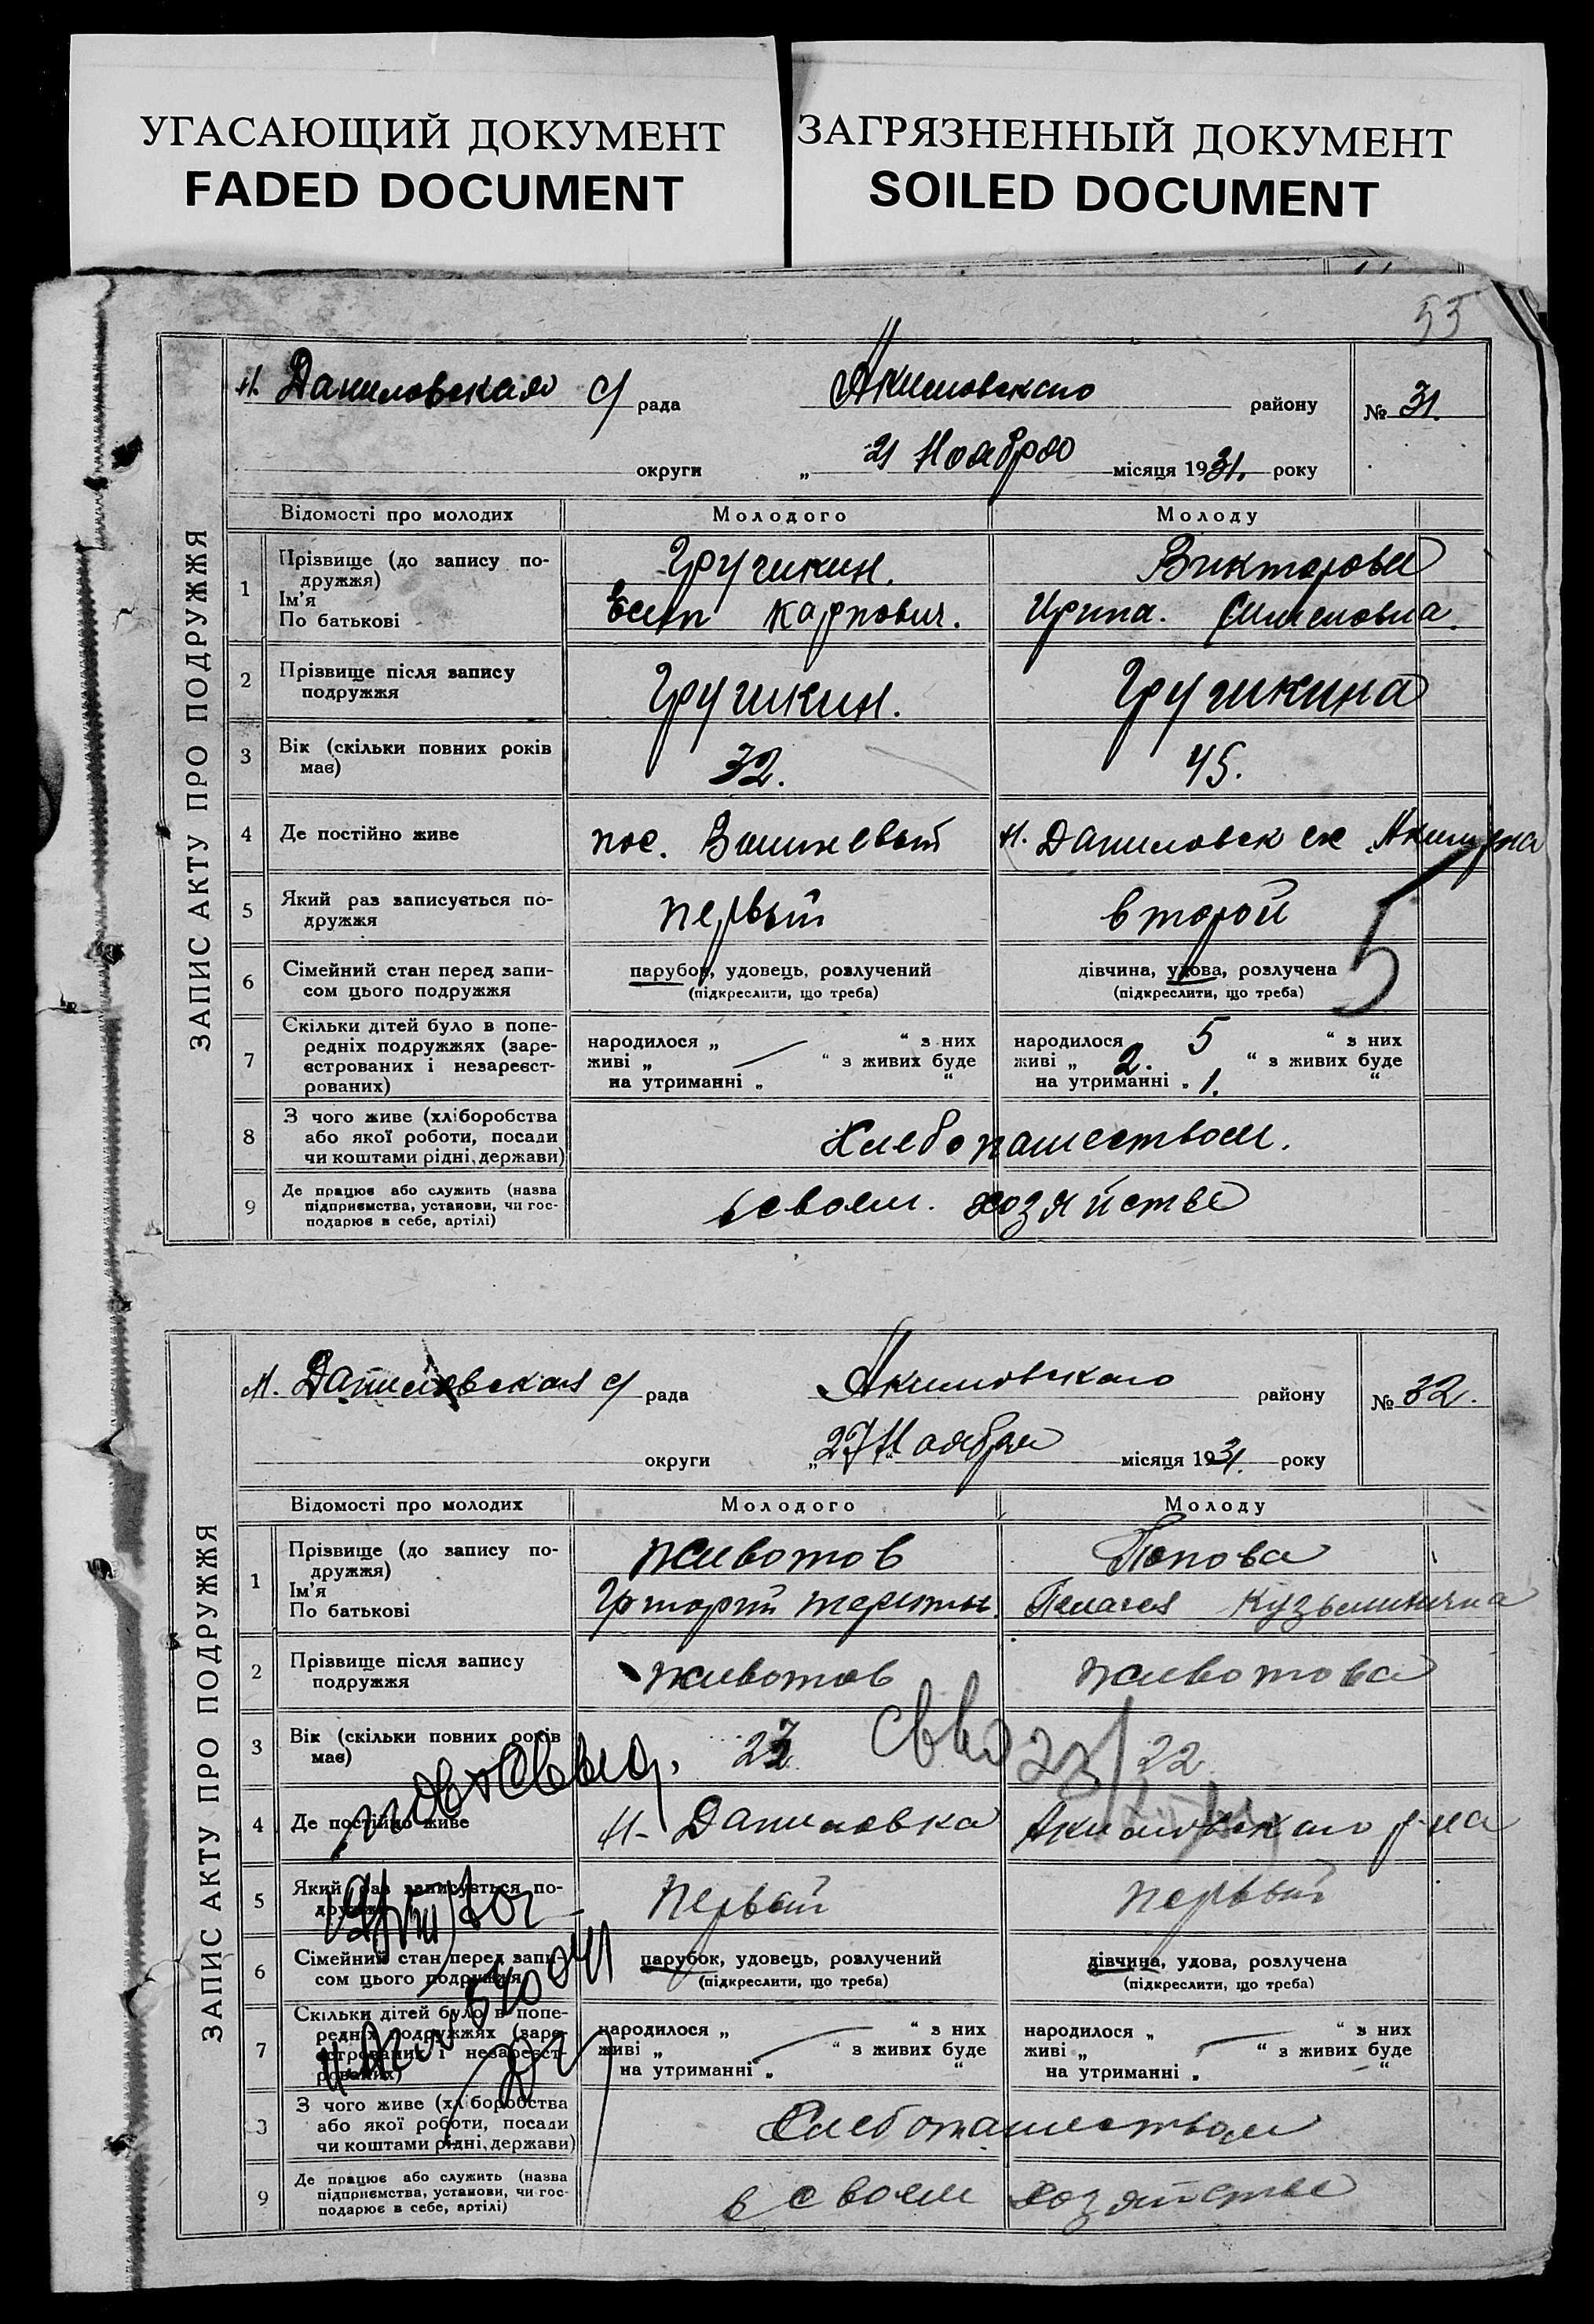 УГАСАЮЩИЙ ДОКУМЕНТ
FADED DOCUMENT
ЗАГРЯЗНЕННЫЙ ДОКУМЕНТ
SOILED DOCUMENT
55
ЗАПИС АКТУ ПРО ПОДРУЖЖЯ
Н. Даниловская с/ рада Акимовского району № 31.
округи „ 21 Ноября місяця 1931. року
Відомості про молодих Молодого Молоду
1 Прізвище (до запису по-
дружжя)
Ім'я
По батькові
Гручикин. Викторова
Есип Карпович. Ирина. Сименовна.
2 Прізвище після запису
подружжя
Гручикин. Гручикина
3 Вік (скільки повних років
має)
32. 45.
4 Де постійно живе
пос. Вишневый Н. Даниловск ск
5 Який раз записується по-
дружжя
первый второй
5
6 Сімейний стан перед запи-
сом цього подружжя
парубок, удовець, розлучений
(підкреслити, що треба)
дівчина, удова, розлучена
(підкреслити, що треба)
7 Скільки дітей було в попе-
редніх подружжях (заре-
єстрованих і незареєст-
рованих)
народилося „ — “ з них
живі „ “ з живих буде
на утриманні „ “
народилося 5 “ з них
живі „ 2. “ з живих буде
на утриманні „ 1. “
8 З чого живе (хліборобства
або якої роботи, посади
чи коштами рідні, держави)
Хлебопашеством.
9 Де працює або служить (назва
підприємства, установи, чи гос-
подарює в себе, артілі)
в своем. хозяйстве
ЗАПИС АКТУ ПРО ПОДРУЖЖЯ
Н. Даниловская с/ рада Акимовского району № 32.
округи „27 Ноября місяця 1931. року
Відомості про молодих Молодого Молоду
1 Прізвище (до запису по-
дружжя)
Ім'я
По батькові
Животов Попова
Григорий Пелагея Кузьминична
2 Прізвище після запису
подружжя
Животов Животова
3 Вік (скільки повних років
має)
22
4 Де постійно живе
Н- Даниловка Акимовского р-на
5 Який раз записується по-
дружжя
первый первый
6 Сімейний стан перед запи-
сом цього подружжя
парубок, удовець, розлучений
(підкреслити, що треба)
дівчина, удова, розлучена
(підкреслити, що треба)
7 Скільки дітей було в попе-
редніх подружжях (заре-
єстрованих і незареєст-
рованих)
народилося „ — “ з них
живі „ “ з живих буде
на утриманні „ “
народилося „ — “ з них
живі „ “ з живих буде
на утриманні „ “
8 З чого живе (хліборобства
або якої роботи, посади
чи коштами рідні, держави)
Хлебопашеством
9 Де працює або служить (назва
підприємства, установи, чи гос-
подарює в себе, артілі)
в своем хозяйстве